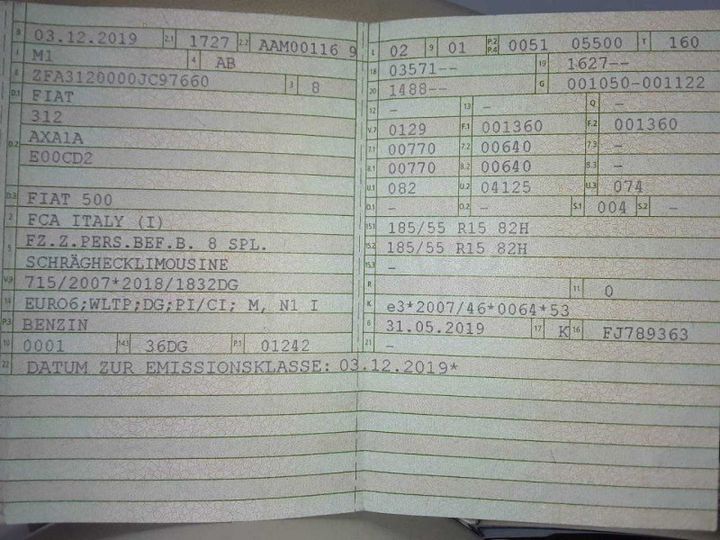 B 03.12.2019 2.1 1727 2.2 AAM00116 9
J M1 4 AB
E ZFA3120000JC97660 3 8
D.1 FIAT
312
D.2 AXA1A
E00CD2
D.3 FIAT 500
2 FCA ITALY (I)
5 FZ.Z.PERS.BEF.B. 8 SPL.
SCHRÄGHECKLIMOUSINE
V.9 715/2007*2018/1832DG
14 EURO6;WLTP;DG;PI/CI; M, N1 I
P.3 BENZIN
10 0001 14.1 36DG P.1 01242
22 DATUM ZUR EMISSIONSKLASSE: 03.12.2019*
L 02 9 01 P.2 P.4 0051 05500 T 160
18 03571-- 19 1627--
20 1488-- G 001050-001122
12 - 13 - Q -
V.7 0129 F.1 001360 F.2 001360
7.1 00770 7.2 00640 7.3 -
8.1 00770 8.2 00640 8.3 -
U.1 082 U.2 04125 U.3 074
O.1 - O.2 - S.1 004 S.2 -
15.1 185/55 R15 82H
15.2 185/55 R15 82H
15.3 -
R 11 0
K e3*2007/46*0064*53
6 31.05.2019 17 K 16 FJ789363
21 -